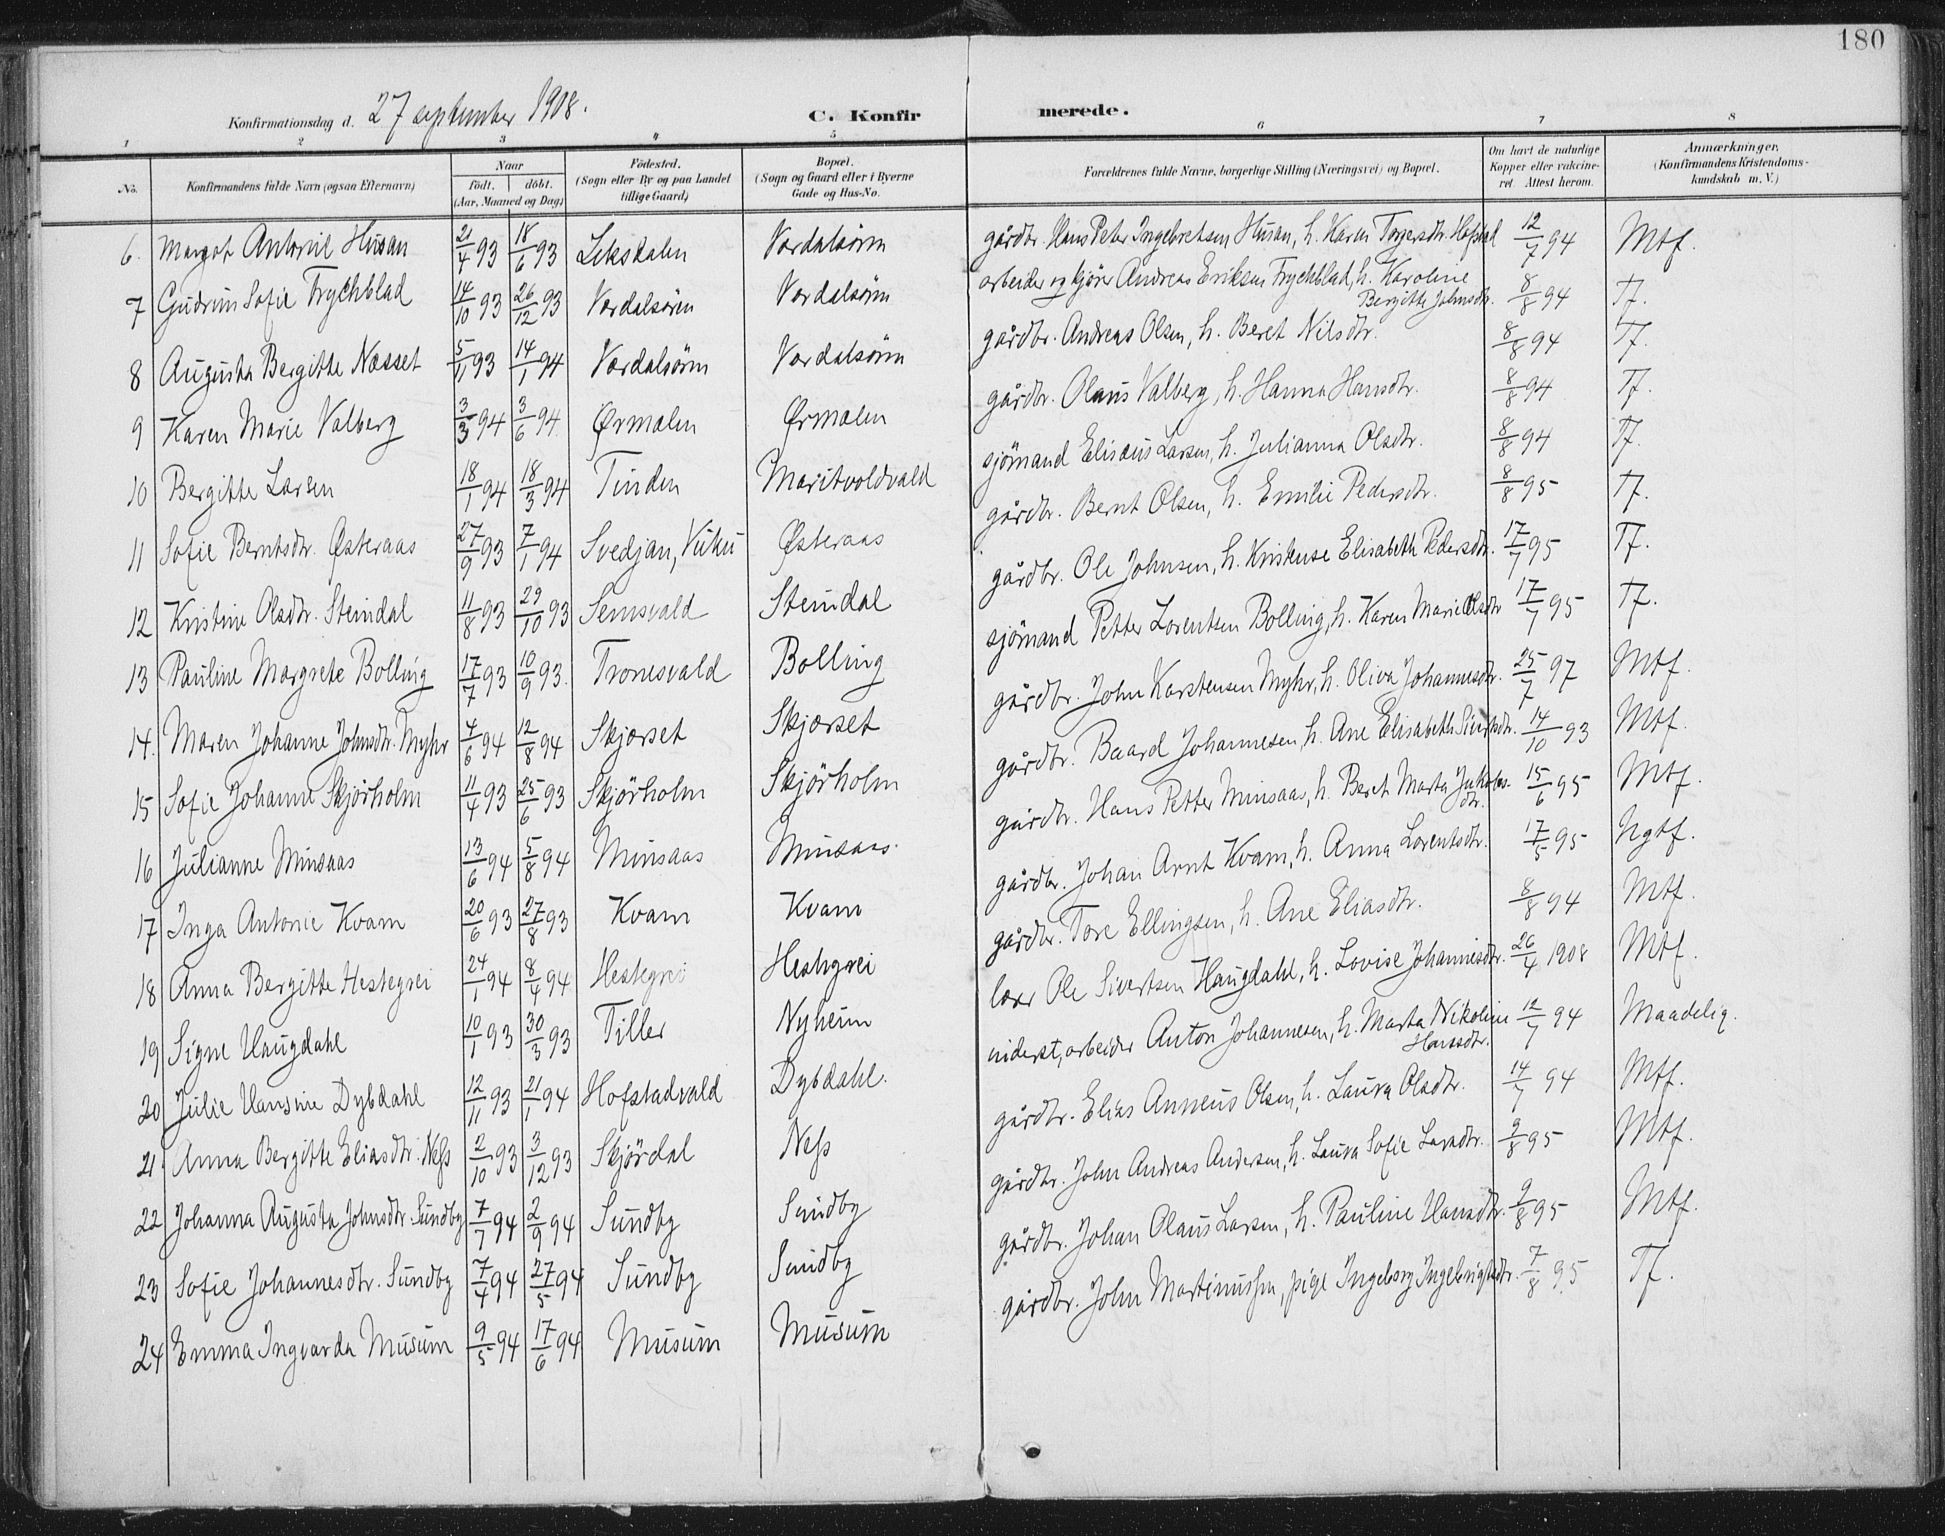 180
Konfirmationsdag d. 27 september 1908.
C. Konfirmerede.
1 2 3 4 5 6 7 8
No. Konfirmandens fulde Navn (ogsaa Efternavn) Naar födt. döbt. (Aar, Maaned og Dag) Födested. (Sogn eller By og paa Landet tillige Gaard) Bopæl. (Sogn og Gaard eller i Byerne Gade og Hus-No. Forældrenes fulde Navne, borgerlige Stilling (Næringsvei) og Bopæl. Om havt de naturlige Kopper eller vakcineret. Attest herom. Anmærkninger. (Konfirmandens Kristendomskundskab m. V.)
6. Margot Antonie Husan 21/4 93 18/6 93 Leksdalen Værdalsøren gårdbr. Hans Peter Ingebretsen Husan, h. Karen 12/7 94 Mtf.
7 Gudrun Sofie Frychblad 14/10 93 26/12 93 Værdalsøren Værdalsøren arbeider og kjører Andreas Eriksen Frychblad, h. Karoline Bergitte Johnsdtr. 8/8 94 Tf.
8 Augusta Bergitte Næsset 5/11 93 14/1 94 Værdalsøren Værdalsøren gårdbr. Andreas Olsen, h. Beret Nilsdtr. 8/8 94 Tf.
9 Karen Marie Valberg 3/3 94 3/6 94 Ørmælen Ørmælen gårdbr. Olaus Valberg, h. Hanna Hansdtr. 8/8 94 Tf.
10 Bergitte Larsen 18/1 94 18/3 94 Tinden Maritvoldvald sjömand Elisæus Larsen, h. Julianna Olsdtr. 8/8 94 Tf.
11 Sofie Berntsdtr. Østeraas 27/9 93 7/1 94 Svedjan, Vuku Østeraas gårdbr. Bernt Olsen, h. Emilie Pedersdtr. 8/8 95 Tf.
12 Kristine Olsdtr. Steindal 11/8 93 29/10 93 Semsvald Steindal gårdbr. Ole Johnsen, h. Kristense Elisabeth Pedersdtr. 17/7 95 Tf.
13 Pauline Margrete Bolling 17/7 93 10/9 93. Tronesvald Bolling sjömand Petter Lorentsen Bolling, h. Karen Marie Olsdtr 17/7 95 Tf.
14. Maren Johanne Johnsdtr. Myhr 4/6 94 12/8 94 Skjærset Skjærset gårdbr. John Karstensen Myhr, h. Oliva Johannesdtr. 25/7 97 Mtf.
15 Sofie Johanne Skjörholm 11/4 93 25/6 93 Skjörholm Skjörholm gårdbr. Baard Johannesen, h. Ane Elisabeth Sivertsdtr. 14/10 93 Mtf.
16 Julianne Minsaas 13/6 94 5/8 94 Minsaas Minsaas. gårdbr. Hans Petter Minsaas, h. Beret Marta Jakobsdtr. 15/6 95 Mtf.
17 Inga Antonie Kvam 20/6 93 27/8 93 Kvam Kvam gårdbr. Johan Arnt Kvam, h. Anna Lorentsdtr. 17/5 95 Ngtf.
18 Anna Bergitte Hestegrei 24/1 94 8/4 94 Hestegrei Hestegrei gårdbr. Tore Ellingsen, h. Ane Eliasdtr. 8/8 94 Mtf.
19 Signe Haugdahl 10/1 93 30/3 93 Tiller Nyheim lærer Ole Sivertsen Haugdahl, h. Lovise Johannesdtr. 26/4 1908 Mtf.
20 Julie Hansine Dybdahl 12/11 93 21/1 94 Hofstadvald Dybdahl. inderst, arbeider Anton Johannesen, h. Marta Nikoline Hansdtr. 12/7 94 Maadelig.
21 Anna Bergitte Eliasdtr. Neſs 2/10 93 3/12 93 Skjördal Neſs gårdbr. Elias Anneus Olsen, h. Laura Olsdtr. 14/7 94 Mtf.
22 Johanna Augusta Johnsdtr. Sundby 7/7 94 2/9 94 Sundby Sundby gårdbr. John Andreas Andersen, h. Laura Sofie Larsdtr. 9/8 95 Mtf.
23 Sofie Johannesdtr. Sundby 7/4 94 27/5 94 Sundby Sundby gårdbr. Johan Olaus Larsen, h. Pauline Hansdtr. 9/8 95 Mtf.
24 Emma Ingvarda Musum 9/5 94 17/6 94 Musum Musum gårdbr. John Martinusſen, pige Ingeborg Ingebrigtsdtr. 7/8 95 Tf.